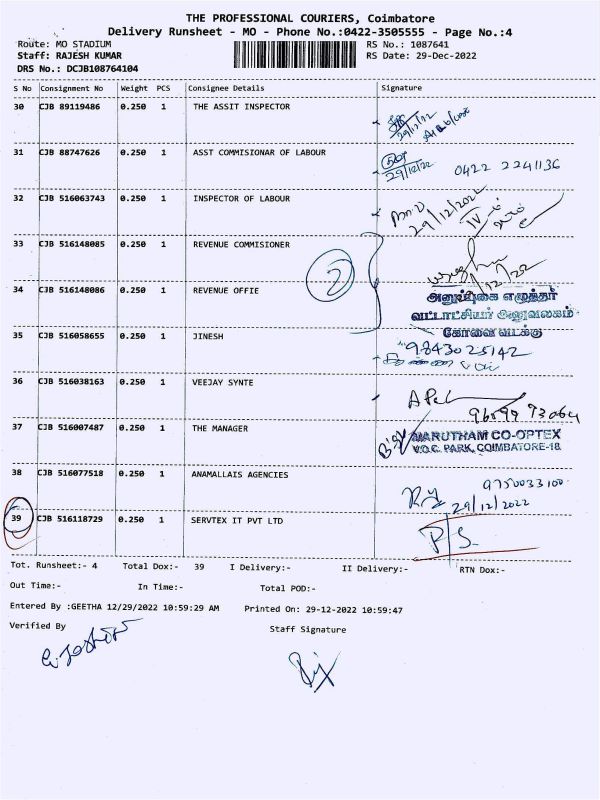 THE PROFESSIONAL COURIERS, Coimbatore
Delivery Runsheet - MO - Phone No.:0422-3505555 - Page No.:4
Route: MO STADIUM RS No.: 1087641
Staff: RAJESH KUMAR RS Date: 29-Dec-2022
DRS No.: DCJB108764104
S No Consignment No Weight PCS Consignee Details Signature
30 CJB 89119486 0.250 1 THE ASSIT INSPECTOR
29/12/22
31 CJB 88747626 0.250 1 ASST COMMISIONAR OF LABOUR
29/12/22 0422 2241136
32 CJB 516063743 0.250 1 INSPECTOR OF LABOUR
29/12/2022
33 CJB 516148085 0.250 1 REVENUE COMMISIONER
2
34 CJB 516148086 0.250 1 REVENUE OFFIE
அனுப்புகை எழுத்தர்
வட்டாட்சியர் அலுவலகம்
கோவை வடக்கு
35 CJB 516058655 0.250 1 JINESH
9843025142
36 CJB 516038163 0.250 1 VEEJAY SYNTE
37 CJB 516007487 0.250 1 THE MANAGER
MARUTHAM CO-OPTEX
V.O.C. PARK, COIMBATORE-18.
38 CJB 516077518 0.250 1 ANAMALLAIS AGENCIES
9750033100
29/12/2022
39 CJB 516118729 0.250 1 SERVTEX IT PVT LTD
Tot. Runsheet:- 4 Total Dox:- 39 I Delivery:- II Delivery:- RTN Dox:-
Out Time:- In Time:- Total POD:-
Entered By :GEETHA 12/29/2022 10:59:29 AM Printed On: 29-12-2022 10:59:47
Verified By Staff Signature